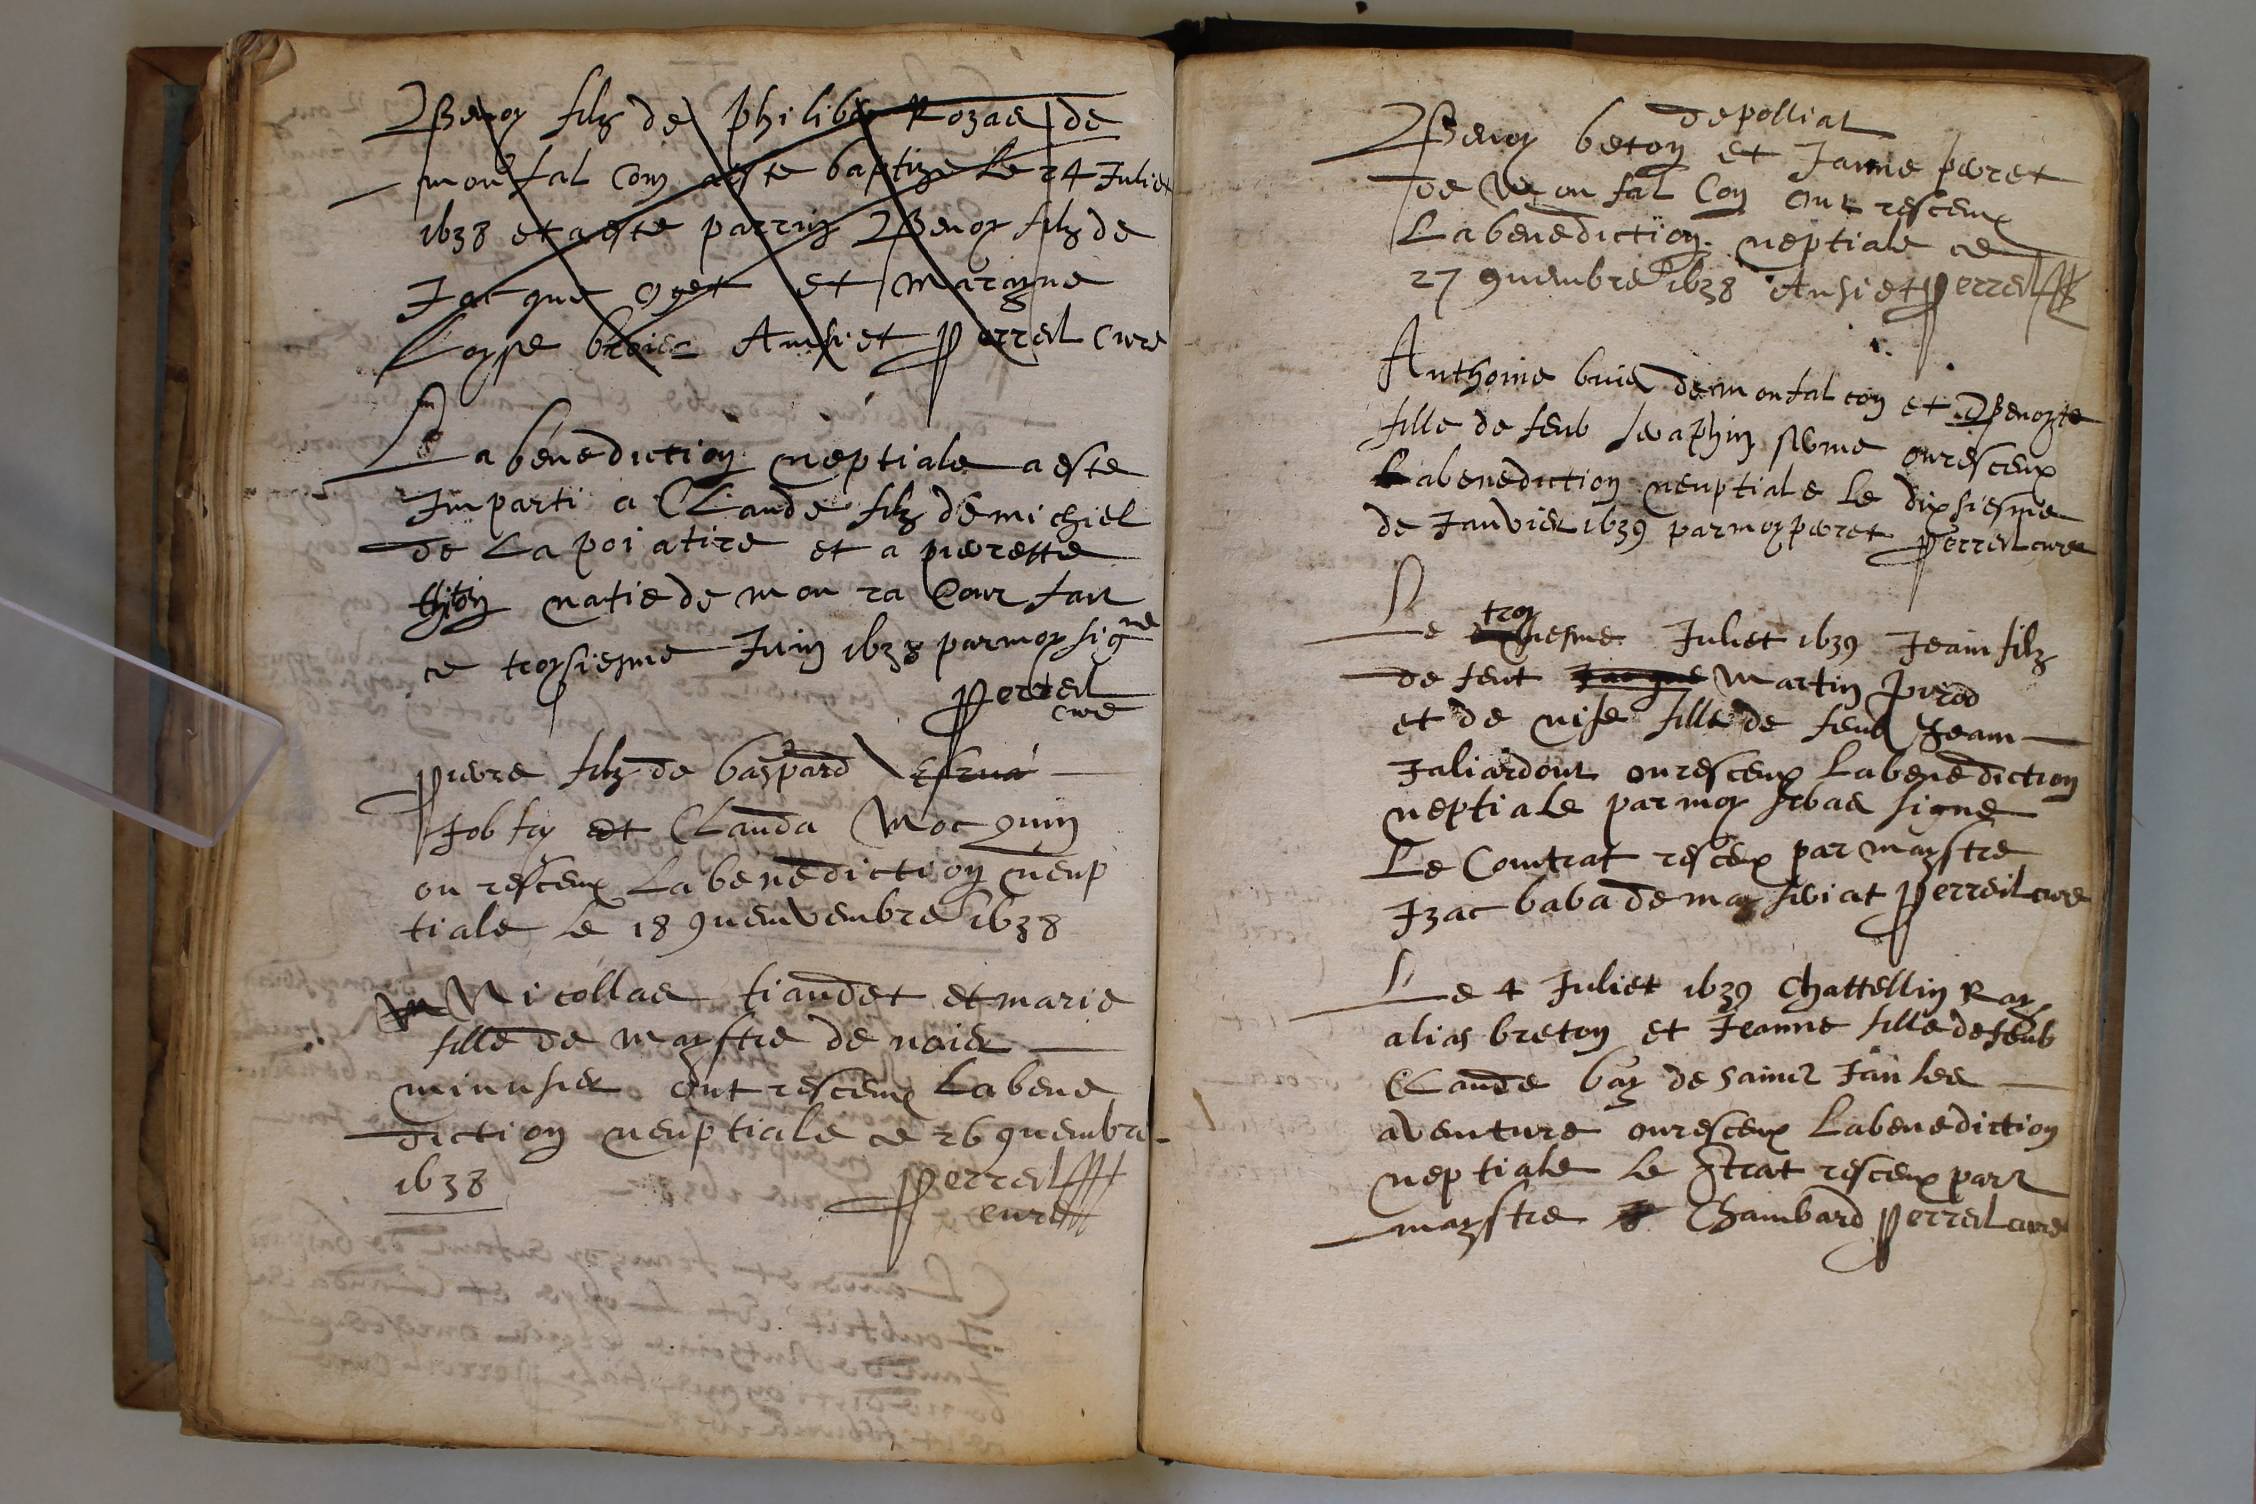 Benoy filz de philibe Rozae de
monfal con a este baptize Le 24 Juliet
1638 et a este parrin Benoy filz de
Jacque oget et marayne
Loyse Ansiet perreil cure
La benediction neptiale a este
Imparti a Claude filz de michiel
de La poiatire et a pierrette
natie de mon ra
ce troysiesme Juin 1638 par moy signe
perreil
cure
pierre filz de baspard
Jobfay et Clauda Mocquin
on resceux La benediction neup
tiale le 18 9uemvembre 1638
Nicollae tiaudet et marie
fille de maystre de
minusier ont resceux La bene
diction neuptiale ce 26 9uembre
1638 perreil
cure
de polliat
Benoy betoy et Janne peret
de Monfal Con ont resceux
La benediction neptiale ce
27 9uembre 1638 Ansiet perreil
Anthoine buie de monfalcon et Benoyte
fille de feub seraphin onresceux
La benediction neuptiale Le dixsiesme
de Janvier 1639 par moy peret perreil cure
troy
Le iesme Juliet 1639 Jean filz
de feut Jacque martin
et de nise fille de feub Jean
Jaliardout onresceux La benediction
neptiale par moy sebae signe
Le Comtrat resceux par maystre
Izac baba de perreil cure
Le 4 Juliet 1639 Chattellin Ray
alias breton et Jeanne fille de feub
Claude bay de sainct Jan les
aventure onresceux La benediction
neptiale Le trat resceux par
maystre Chambard perreil cure